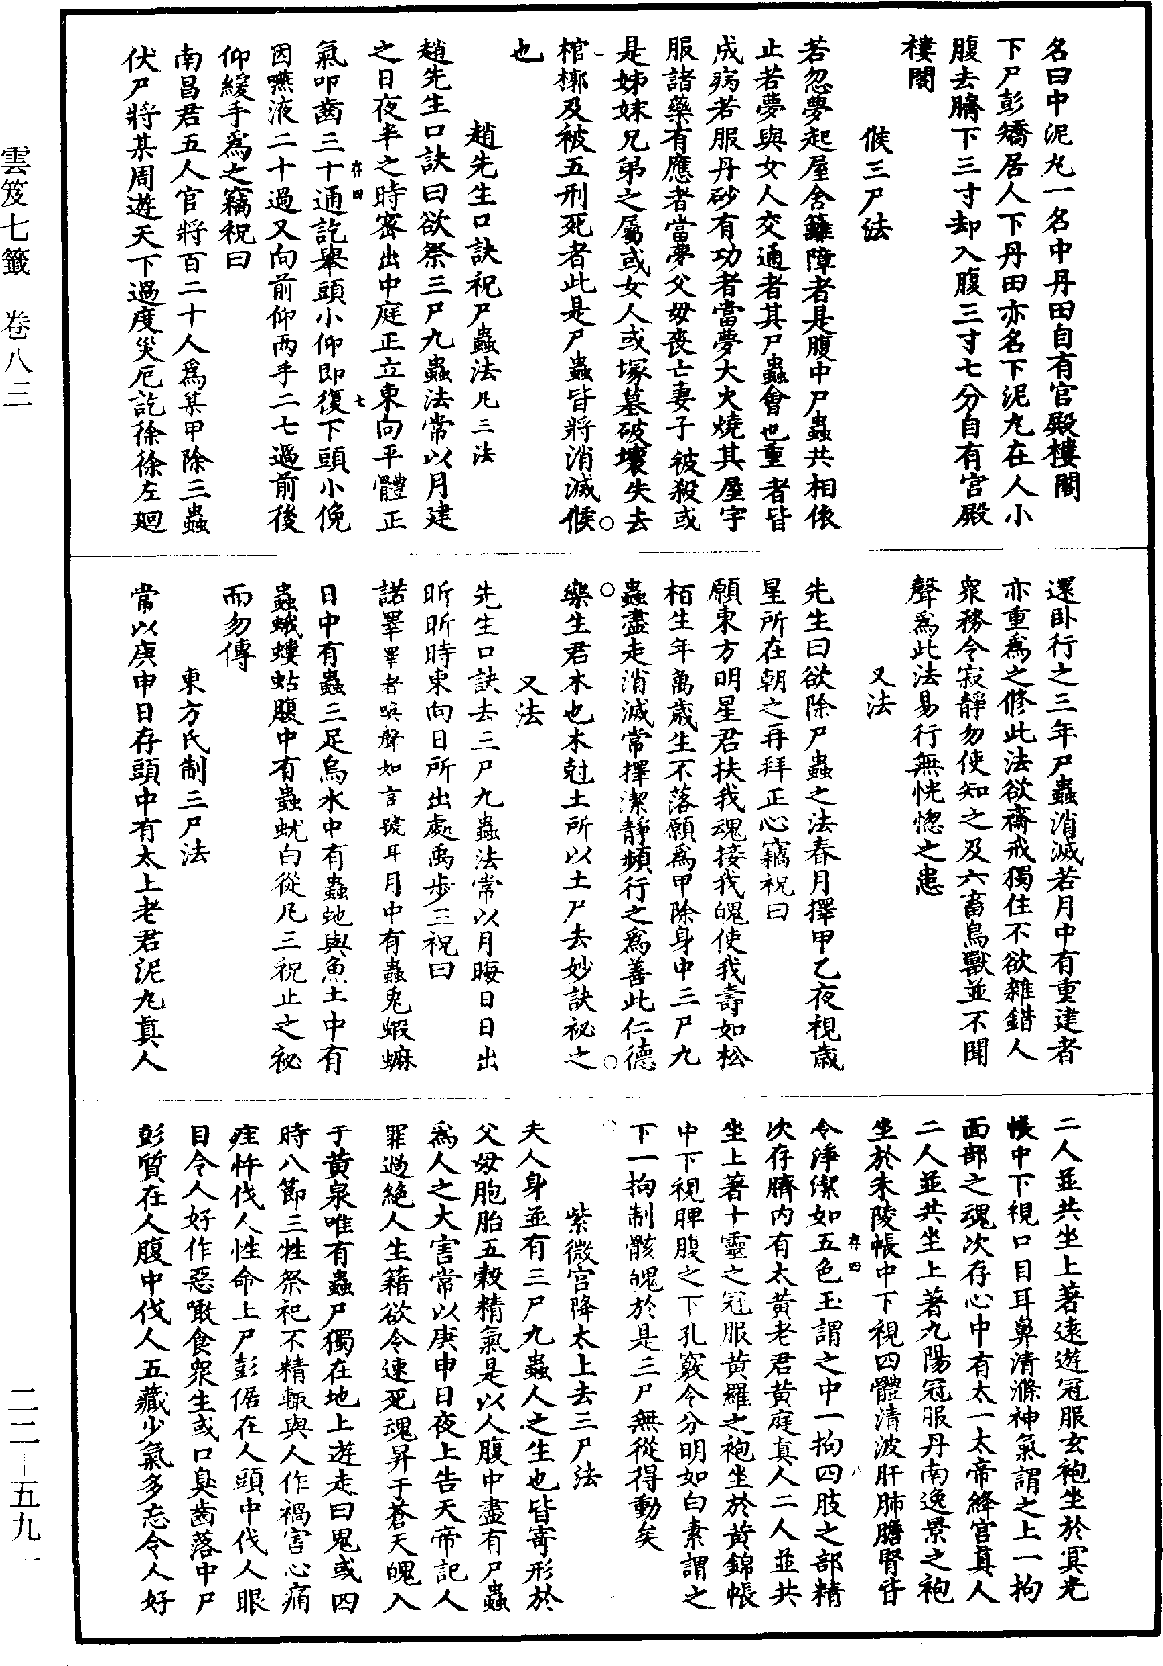 名曰中泥丸一名中丹田自有官殿樓閣
下尸彭矯居人下丹田亦名下泥丸在人小
腹去臍下三寸却入腹三寸七分自有宮殿
樓閣
候三尸法
若忽夢起屋舍籬障者是腹中尸蟲共相依
止若夢與女人交通者其尸蟲會也重者皆
成病若服丹砂有功者當夢大火燒其屋宇
服諸藥有應者當夢父母喪亡妻子被殺或
是姊妹兄弟之屬或女人或塚墓破壞失去
棺槨及被五刑死者此是尸蟲皆將消滅候
也
趙先生口訣祀尸蟲法凡三法
趙先生口訣曰欲祭三尸九蟲法常以月建
之日夜半之時密出中庭正立東向平體正
氣叩齒三十通訖舉頭小仰即復下頭小俛
因嚥液二十過又向前仰兩手二七過前後
仰緩手爲之竊祝曰
南昌君五人官將百二十人爲某甲除三蟲
伏尸將某周遊天下過度災厄訖徐徐左迴
還卧行之三年尸蟲消滅若月中有重建者
亦重爲之修此法欲齋戒獨住不欲雜錯人
衆務令寂靜勿使知之及六畜鳥獸並不聞
聲爲此法易行無恍惚之患
又法
先生曰欲除尸蟲之法春月擇甲乙夜視歲
星所在朝之再拜正心竊祝曰
願東方明星君扶我魂接我魄使我壽如松
栢生年萬歲生不落願爲甲除身中三尸九
蟲盡走消滅常擇潔靜頻行之爲善此仁德
樂生君木也木尅土所以土尸去妙訣祕之
又法
先生口訣去三尸九蟲法常以月晦日日出
昕昕時東向日所出處禹步三祝曰
諾睪睪者喚聲如言號耳月中有蟲兎蝦蟵
日中有蟲三足烏水中有蟲虵與魚土中有
蟲蛾螻蛄腹中有蟲蚘白從凡三祝止之祕
而勿傳
東方氏制三尸法
常以庚申日存頭中有太上老君泥丸真人
二人並共坐上著遠遊冠服玄袍坐於冥光
帳中下視口目耳鼻清滌神氣謂之上一拘
面部之魂次存心中有太一太帝絳宮真人
二人並共坐上著九陽冠服丹南逸景之袍
坐於朱陵帳中下視四體清波肝肺膽腎皆
令淨潔如五色玉謂之中一拘四肢之部精
次存臍内有太黃老君黃庭真人二人並共
坐上著十靈之冠服黃羅之袍坐於黃錦帳
中下視脾腹之下孔竅令分明如白素謂之
下一拘制骸魄於是三尸無從得動矣
紫微宮降太上去三尸法
夫人身並有三尸九蟲人之生也皆寄形於
父母胞胎五穀精氣是以人腹中盡有尸蟲
爲人之大害常以庚申日夜上告天帝記人
罪過絶人生籍欲令速死魂昇于蒼天魄入
于黃泉唯有蟲尸獨在地上遊走曰鬼或四
時八節三牲祭祀不精輙與人作禍害心痛
疰忤伐人性命上尸彭倨在人頭中伐人眼
目令人好作惡噉食衆生或口臭齒落中尸
彭質在人腹中伐人五藏少氣多忘令人好
雲笈七籤　卷八三
二二—五九一